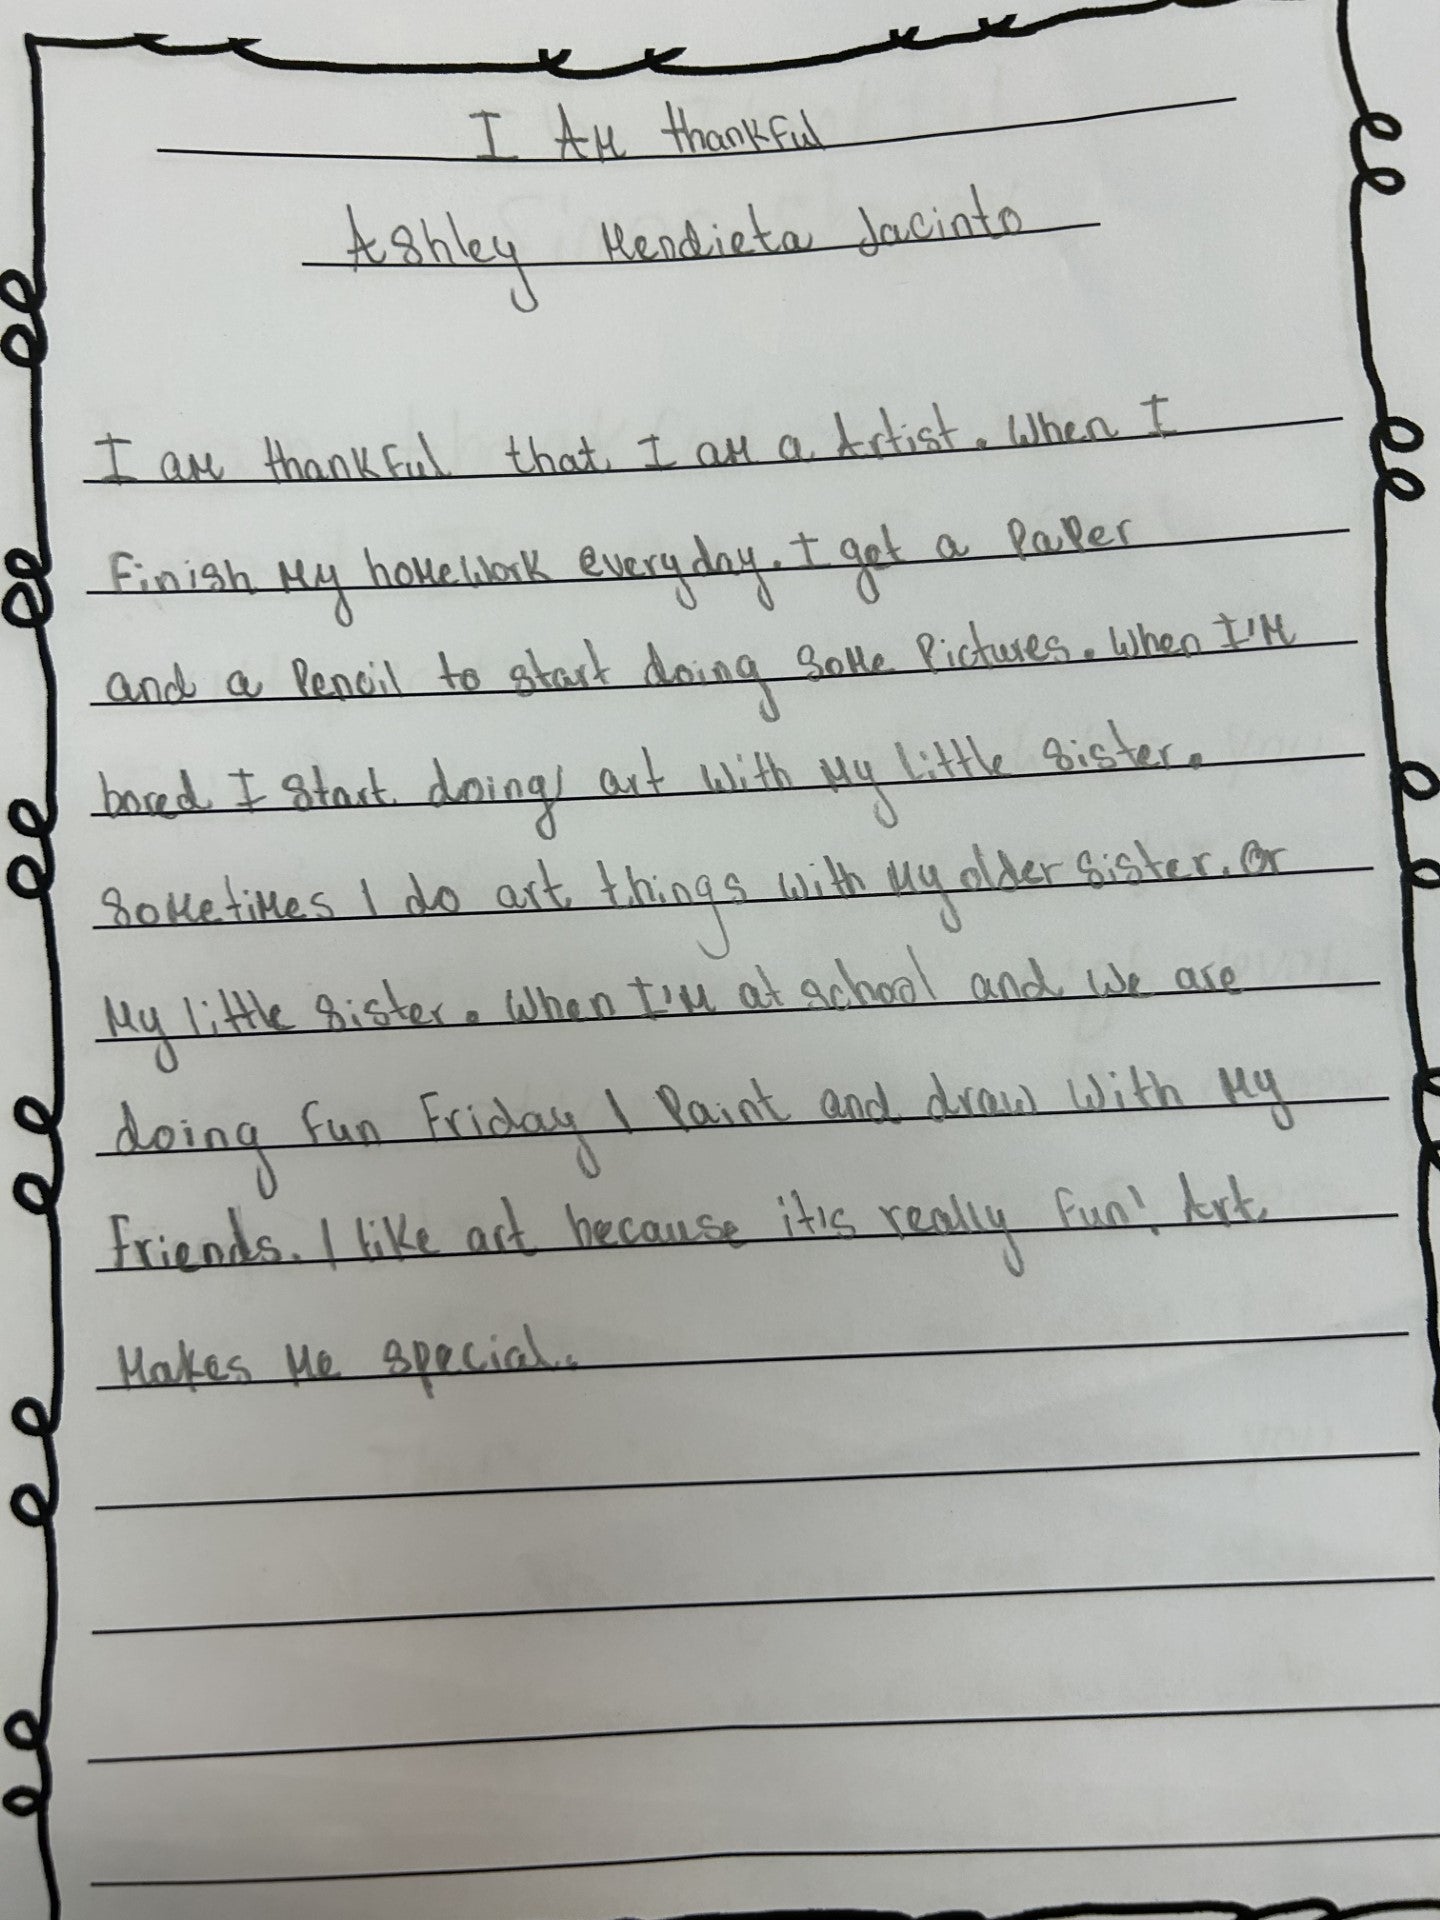 I Am thankful
Ashley Mendieta Jacinto
I am thankful that I am a Artist. When I
Finish My homework everyday. I get a Paper
and a Pencil to start doing some Pictures. When I'm
bored I start doing art with My little sister.
Sometimes I do art things with My older sister. Or
My little sister. When I'm at school and we are
doing Fun Friday I Paint and draw with My
Friends. I like art because it's really Fun! Art
Makes Me special.